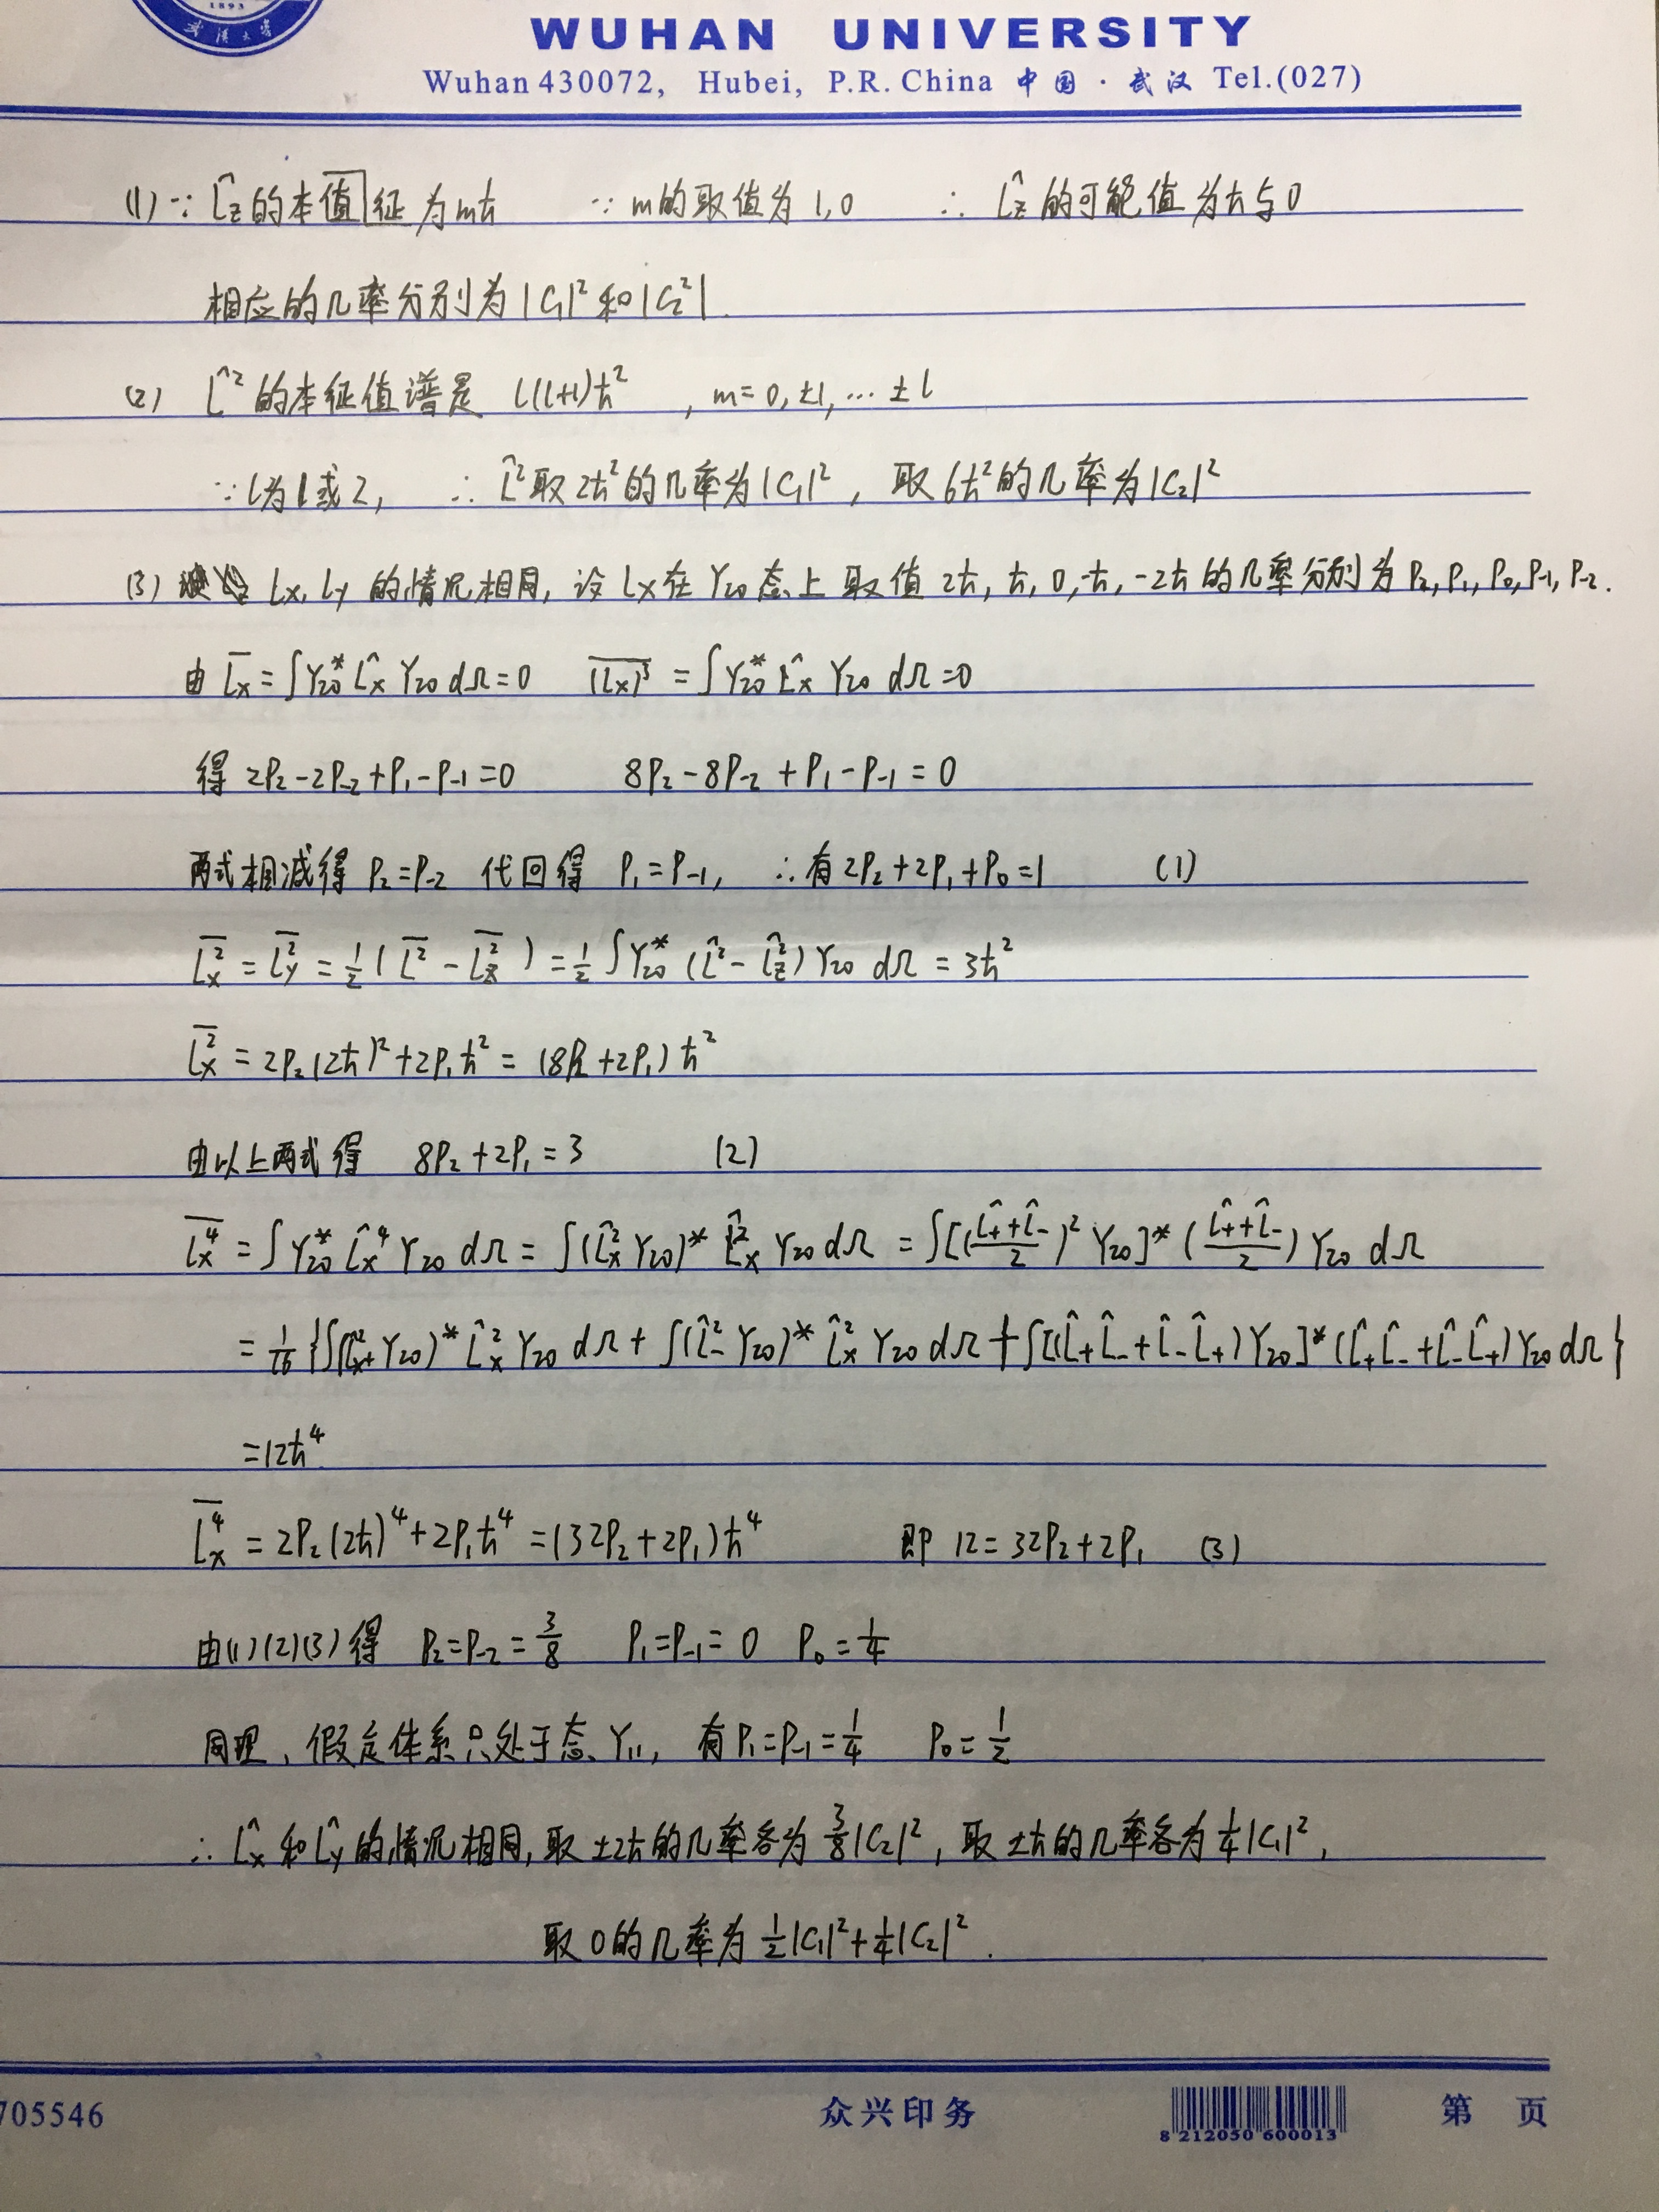 1893
武汉大学
WUHAN UNIVERSITY
Wuhan 430072, Hubei, P.R. China 中国·武汉 Tel.(027)
(1) ∵ L̂z的本值征为mħ ∵ m的取值为1,0 ∴ L̂z的可能值为ħ与0
相应的几率分别为|C₁|²和|C₂²|.
(2) L̂²的本征值谱是 l(l+1)ħ² , m=0,±1,…±l
∵l为1或2, ∴ L̂²取2ħ²的几率为|C₁|², 取6ħ²的几率为|C₂|²
(3) Lx, Ly的情况相同, 设Lx在Y₂₀态上取值2ħ, ħ, 0, -ħ, -2ħ的几率分别为P₂, P₁, P₀, P₋₁, P₋₂.
由 L̅x=∫Y₂₀* L̂x Y₂₀ dΩ=0 (Lx)³‾ =∫Y₂₀* L̂x Y₂₀ dΩ=0
得 2P₂-2P₋₂+P₁-P₋₁=0 8P₂-8P₋₂+P₁-P₋₁=0
两式相减得 P₂=P₋₂ 代回得 P₁=P₋₁, ∴有2P₂+2P₁+P₀=1 (1)
L̅x² = L̅y² = ½(L̅² - L̅z²) = ½∫Y₂₀* (L̂²-L̂z²) Y₂₀ dΩ = 3ħ²
L̅x² = 2P₂(2ħ)²+2P₁ħ² = (8P₂+2P₁)ħ²
由以上两式得 8P₂+2P₁=3 (2)
L̅x⁴ = ∫Y₂₀* L̂x⁴ Y₂₀ dΩ = ∫(L̂x² Y₂₀)* L̂x² Y₂₀ dΩ = ∫[((L̂₊+L̂₋)/2)² Y₂₀]* ((L̂₊+L̂₋)/2) Y₂₀ dΩ
= 1/16 {∫(L̂²₊ Y₂₀)* L̂x² Y₂₀ dΩ + ∫(L̂₋² Y₂₀)* L̂x² Y₂₀ dΩ + ∫[(L̂₊L̂₋+L̂₋L̂₊)Y₂₀]* (L̂₊L̂₋+L̂₋L̂₊)Y₂₀ dΩ}
=12ħ⁴
L̅x⁴ = 2P₂(2ħ)⁴+2P₁ħ⁴=(32P₂+2P₁)ħ⁴ 即 12=32P₂+2P₁ (3)
由(1)(2)(3)得 P₂=P₋₂=3/8 P₁=P₋₁=0 P₀=1/4
同理、假定体系只处于态Y₁₁, 有P₁=P₋₁=1/4 P₀=1/2
∴ L̂x和L̂y的情况相同, 取±2ħ的几率各为3/8|C₂|², 取±ħ的几率各为1/4|C₁|²,
取0的几率为1/2|C₁|²+1/4|C₂|².
705546 众兴印务 8 212050 600013 第 页